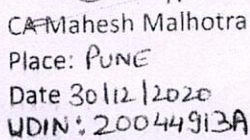 CA Mahesh Malhotra
Place: PUNE
Date 30/12/2020
UDIN: 20044913A